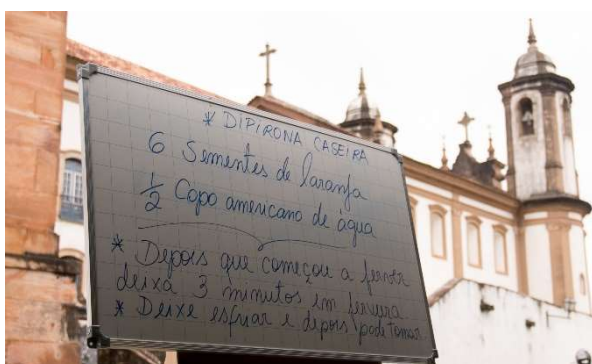 * DIPIRONA CASEIRA
6 Sementes de laranja
1/2 Copo americano de água
* Depois que começou a ferver
deixa 3 minutos em fervura
* Deixe esfriar e depois pode tomar